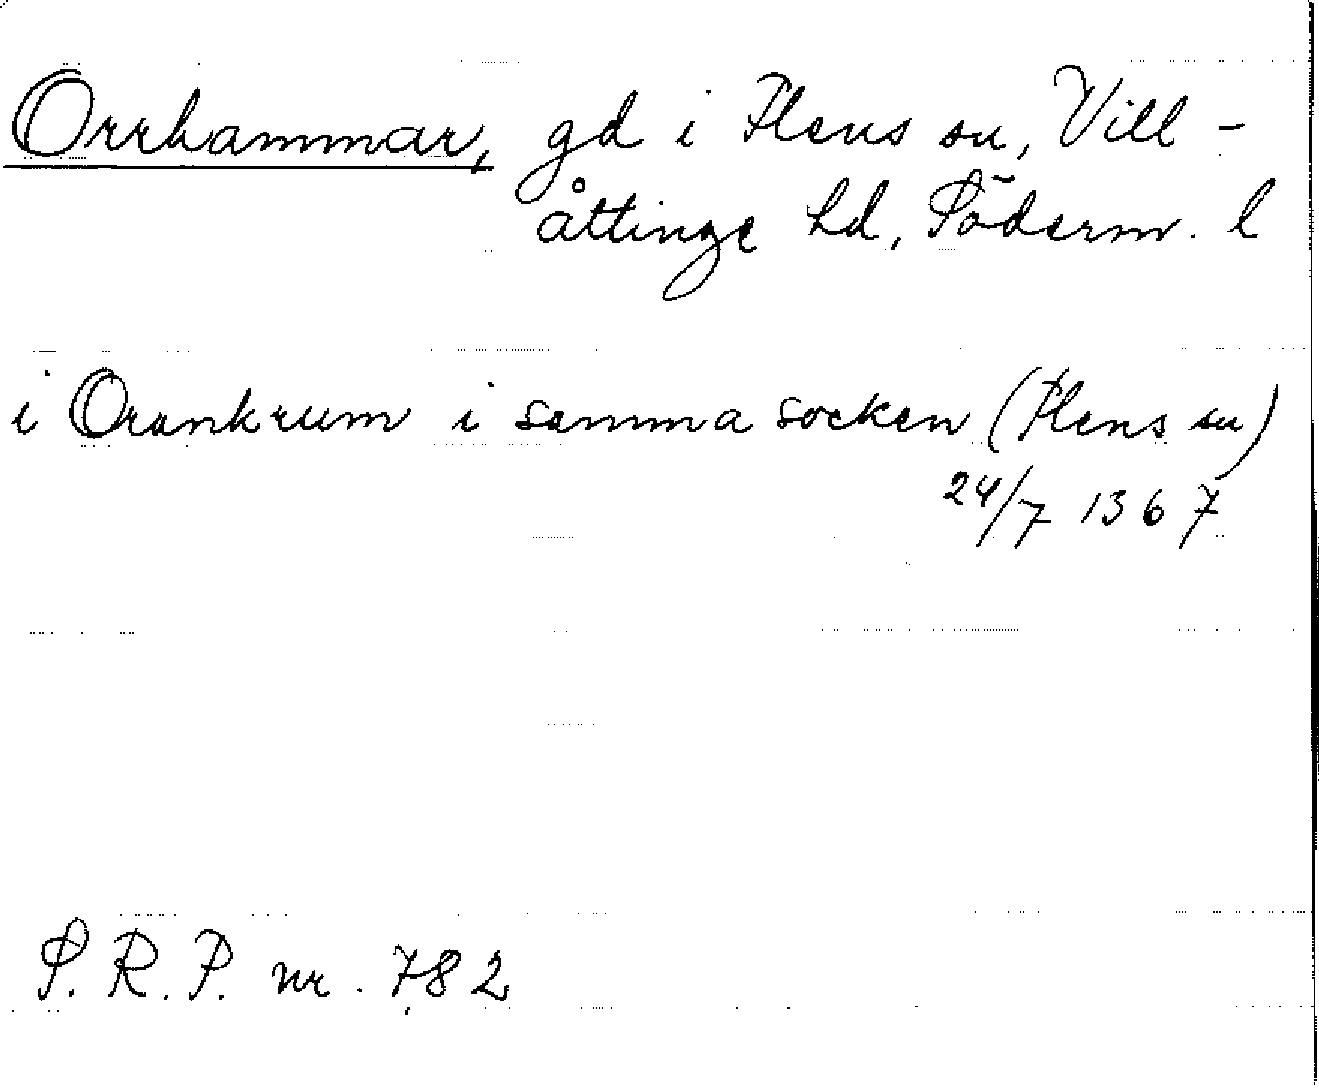 Orrhammar, gd i Flens sn, Vill-
åttinge hd, Söderm. l
i Orankrum i samma socken (Flens sn)
24/7 1367
S. R. P. nr. 782